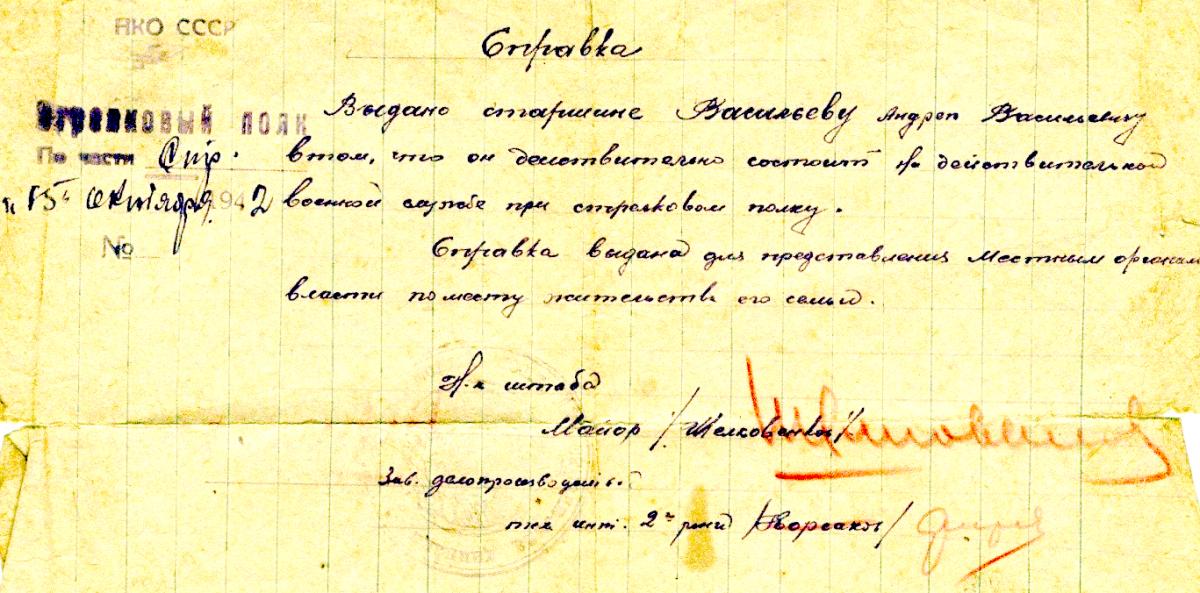 НКО СССР
Справка
Стрелковый полк
По части Стр.
15 октября 1942
№
Выдано старшине Васильеву Андрею Васильевичу
в том, что он действительно состоит на действительной
военной службе при стрелковом полку.
Справка выдана для представления местным органам
власти по месту жительства его семьи.
Н-к штаба
Майор /
Зав. делопроизводств.
тех. инт. 2го ранга